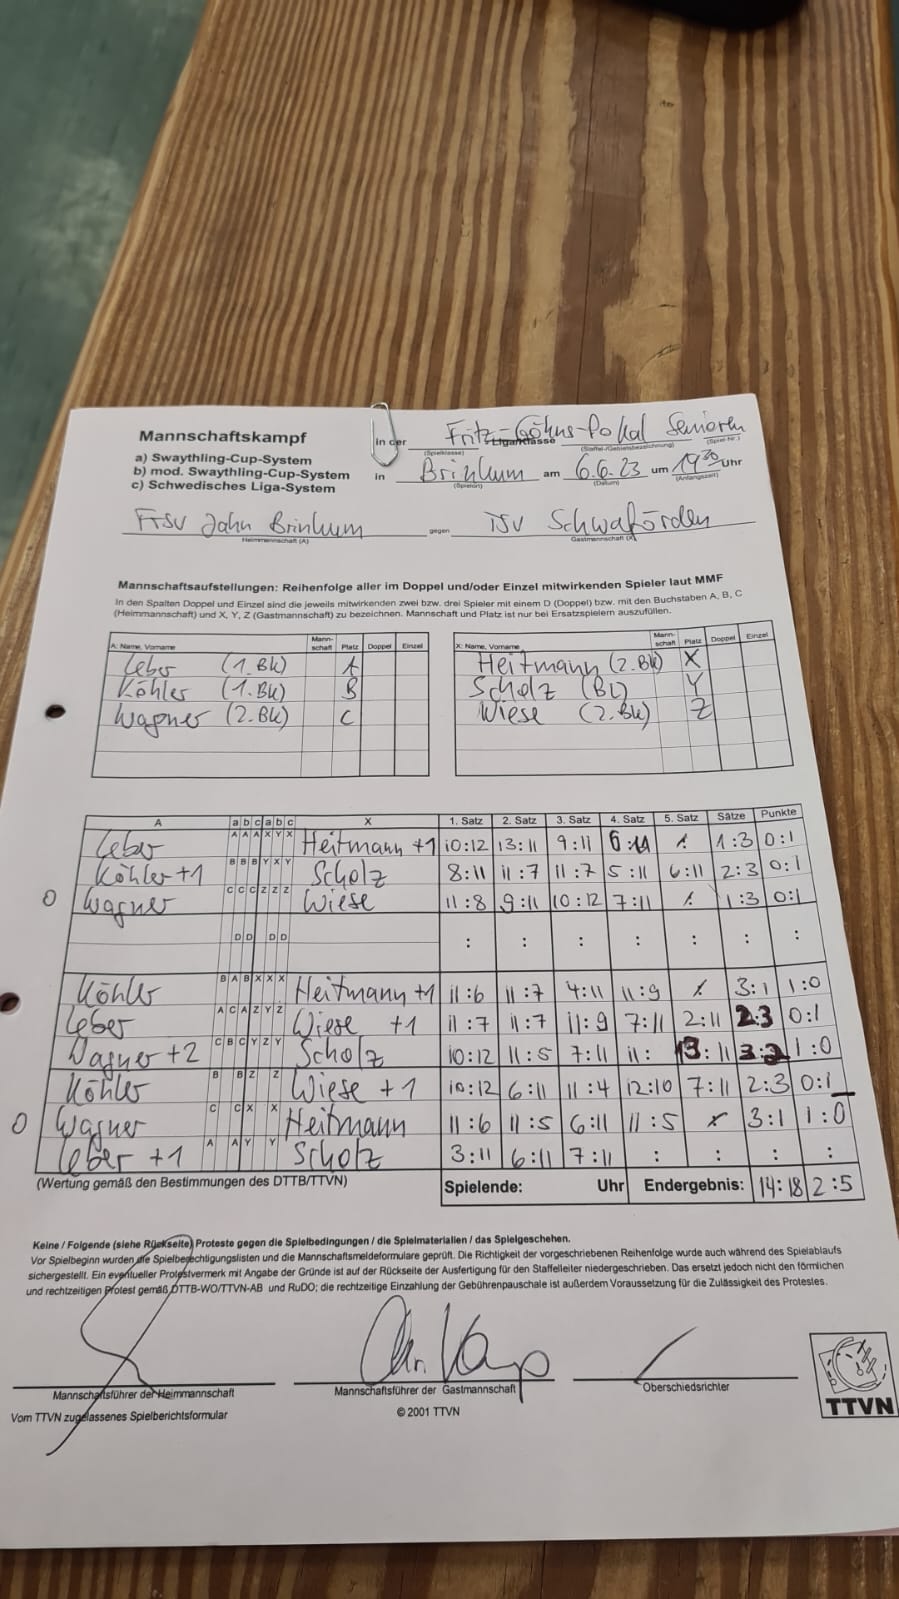 Mannschaftskampf
in der Fritz-Göhns-Pokal Senioren
(Spielklasse) Ligaklasse (Staffel-/Gebietsbezeichnung) (Spiel-Nr.)
a) Swaythling-Cup-System
b) mod. Swaythling-Cup-System
c) Schwedisches Liga-System
in Brinkum am 6.6.23 um 19 30 Uhr
(Spielort) (Datum) (Anfangszeit)
FTSV Jahn Brinkum gegen TSV Schwaförden
Heimmannschaft (A) Gastmannschaft (X)
Mannschaftsaufstellungen: Reihenfolge aller im Doppel und/oder Einzel mitwirkenden Spieler laut MMF
In den Spalten Doppel und Einzel sind die jeweils mitwirkenden zwei bzw. drei Spieler mit einem D (Doppel) bzw. mit den Buchstaben A, B, C
(Heimmannschaft) und X, Y, Z (Gastmannschaft) zu bezeichnen. Mannschaft und Platz ist nur bei Ersatzspielern auszufüllen.
A: Name, Vorname Mann-schaft Platz Doppel Einzel
Leber (1.Bk) A
Köhler (1.Bk) B
Wagner (2.Bk) C
X: Name, Vorname Mann-schaft Platz Doppel Einzel
Heitmann (2.Bk) X
Scholz (BL) Y
Wiese (2.Bk) Z
A a b c a b c X 1. Satz 2. Satz 3. Satz 4. Satz 5. Satz Sätze Punkte
Leber A A A X Y X Heitmann +1 10:12 13:11 9:11 1:3 0:1
Köhler +1 B B B Y X Y Scholz 8:11 11:7 11:7 5:11 6:11 2:3 0:1
0 Wagner C C C Z Z Z Wiese 11:8 9:11 10:12 7:11 1:3 0:1
D D D D : : : : : : :
Köhler B A B X X X Heitmann +1 11:6 11:7 4:11 11:9 3:1 1:0
Leber A C A Z Y Z Wiese +1 11:7 11:7 11:9 7:11 2:11 2:3 0:1
Wagner +2 C B C Y Z Y Scholz 10:12 11:5 7:11 11: 13:11 3:2 1:0
Köhler B B Z Z Wiese +1 10:12 6:11 11:4 12:10 7:11 2:3 0:1
0 Wagner C C X X Heitmann 11:6 11:5 6:11 11:5 3:1 1:0
Leber +1 A A Y Y Scholz 3:11 6:11 7:11 : : : :
(Wertung gemäß den Bestimmungen des DTTB/TTVN) Spielende: Uhr Endergebnis: 14:18 2:5
Keine / Folgende (siehe Rückseite) Proteste gegen die Spielbedingungen / die Spielmaterialien / das Spielgeschehen.
Vor Spielbeginn wurden die Spielberechtigungslisten und die Mannschaftsmeldeformulare geprüft. Die Richtigkeit der vorgeschriebenen Reihenfolge wurde auch während des Spielablaufs
sichergestellt. Ein eventueller Protestvermerk mit Angabe der Gründe ist auf der Rückseite der Ausfertigung für den Staffelleiter niedergeschrieben. Das ersetzt jedoch nicht den förmlichen
und rechtzeitigen Protest gemäß DTTB-WO/TTVN-AB und RuDO; die rechtzeitige Einzahlung der Gebührenpauschale ist außerdem Voraussetzung für die Zulässigkeit des Protestes.
Mannschaftsführer der Heimmannschaft
Mannschaftsführer der Gastmannschaft
Oberschiedsrichter
Vom TTVN zugelassenes Spielberichtsformular
© 2001 TTVN
TTVN